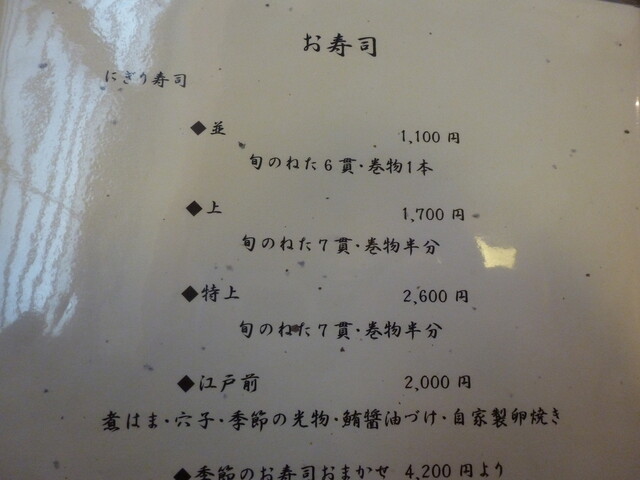 お寿司
にぎり寿司
◆並 1,100 円
旬のねた6貫・巻物1本
◆上 1,700 円
旬のねた7貫・巻物半分
◆特上 2,600 円
旬のねた7貫・巻物半分
◆江戸前 2,000 円
煮はま・穴子・季節の光物・鮪醤油づけ・自家製卵焼き
◆季節のお寿司おまかせ 4,200 円より